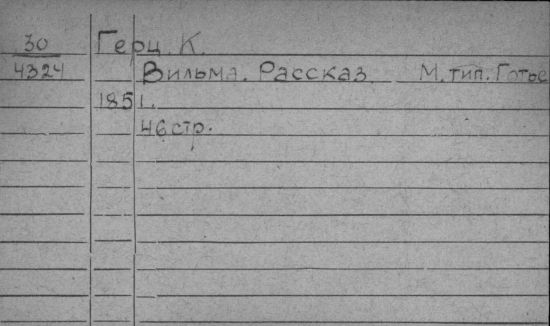 30 Герц. К.
4324 Вильма. Рассказ М. тип. Готье
1851.
46 стр.